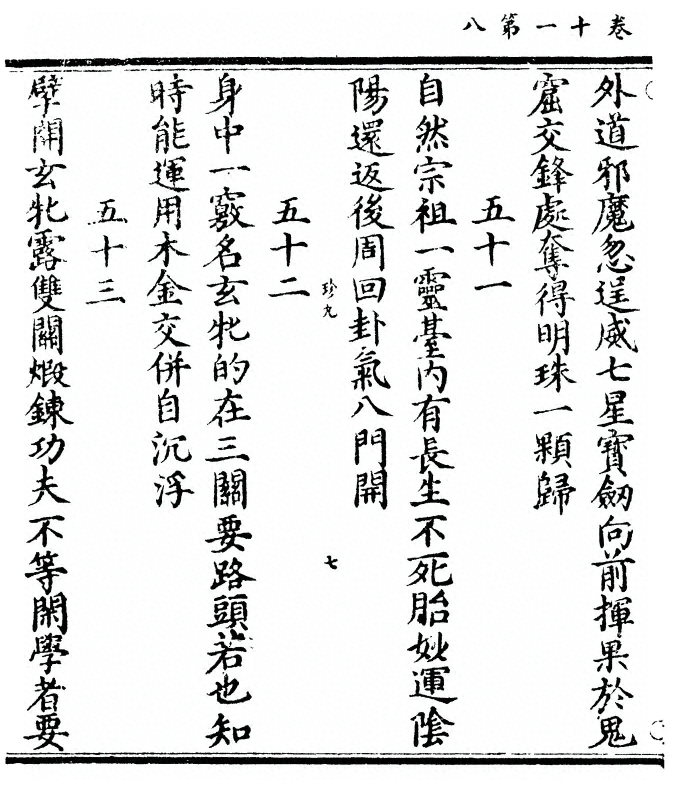 卷十一第八
外道邪魔忽逞威七星寶劒向前揮果於鬼
窟交鋒處奪得明珠一顆歸
五十一
自然宗祖一靈臺内有長生不死胎妙運陰
陽還返後周回卦氣八門開
珍九
七
五十二
身中一竅名玄牝的在三關要路頭若也知
時能運用木金交併自沉浮
五十三
擘開玄牝露雙關煅鍊功夫不等閑學者要